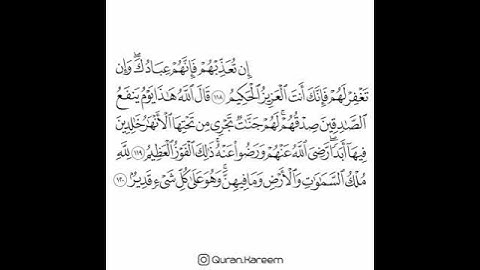 إِن تُعَذِّبْهُمْ فَإِنَّهُمْ عِبَادُكَ ۖ وَإِن
تَغْفِرْ لَهُمْ فَإِنَّكَ أَنتَ ٱلْعَزِيزُ ٱلْحَكِيمُ ١١٨ قَالَ ٱللَّهُ هَـٰذَا يَوْمُ يَنفَعُ
ٱلصَّـٰدِقِينَ صِدْقُهُمْ ۚ لَهُمْ جَنَّـٰتٌ تَجْرِى مِن تَحْتِهَا ٱلْأَنْهَـٰرُ خَـٰلِدِينَ
فِيهَآ أَبَدًا ۚ رَّضِىَ ٱللَّهُ عَنْهُمْ وَرَضُوا۟ عَنْهُ ۚ ذَٰلِكَ ٱلْفَوْزُ ٱلْعَظِيمُ ١١٩ لِلَّهِ
مُلْكُ ٱلسَّمَـٰوَٰتِ وَٱلْأَرْضِ وَمَا فِيهِنَّ ۚ وَهُوَ عَلَىٰ كُلِّ شَىْءٍ قَدِيرٌۢ ١٢٠
Quran.Kareem